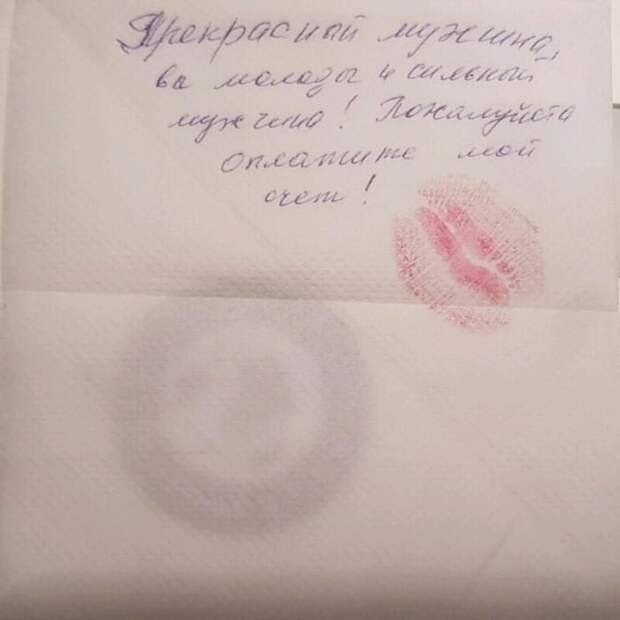 Прекрасный мужчина,
вы молоды и сильный
мужчина! Пожалуйста
оплатите мой
счет!